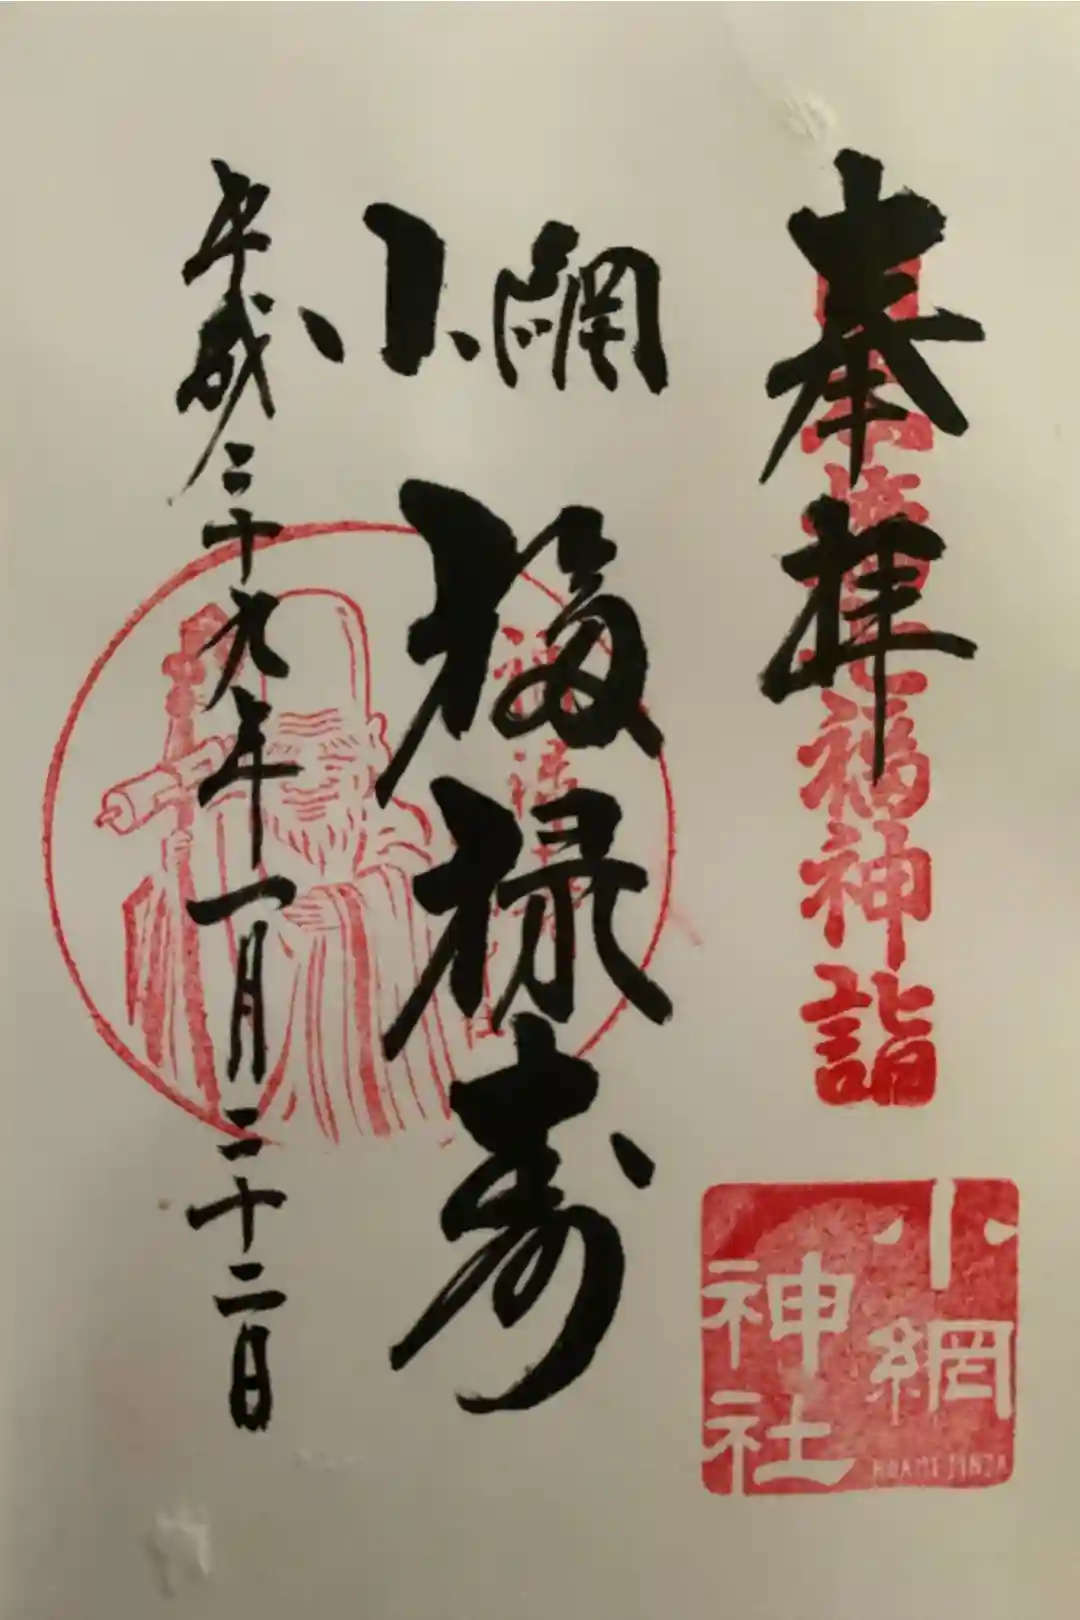 奉拝
日本橋七福神詣
小網
福禄寿
平成二十九年一月二十二日
小網
神社
KOAMI JINJA